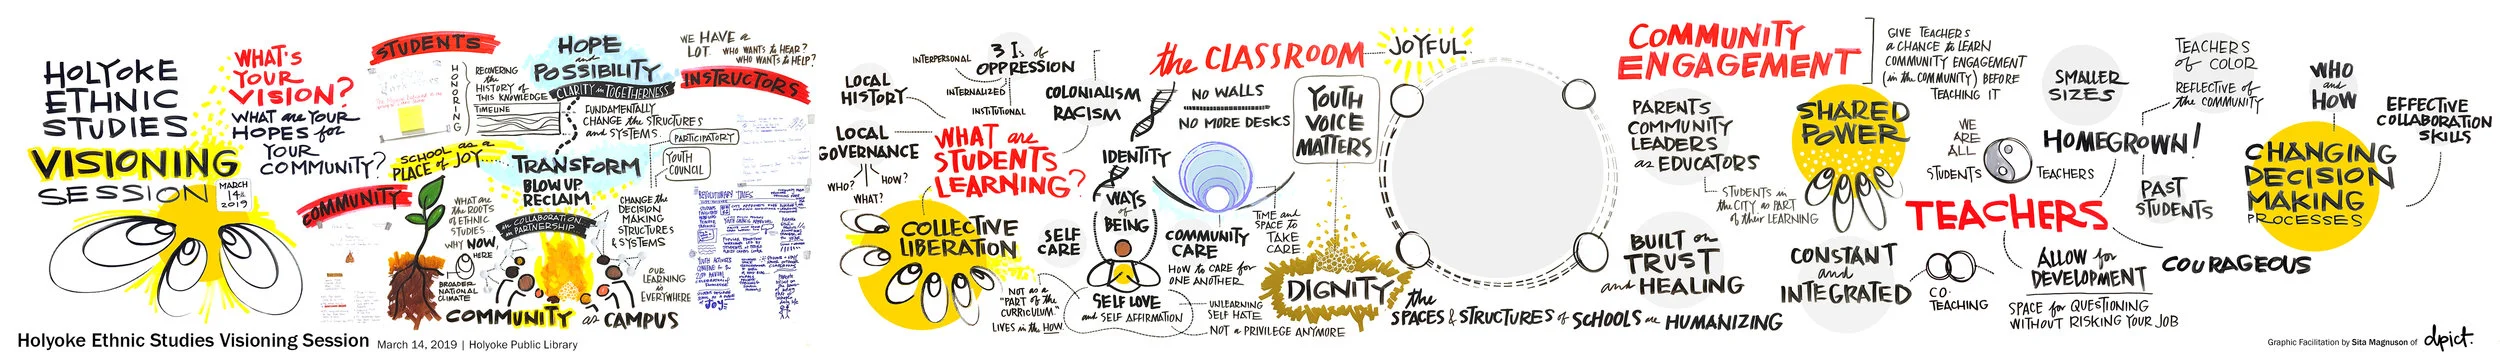 HOLYOKE
ETHNIC
STUDIES
VISIONING
SESSION
MARCH
14th
2019
WHAT'S
YOUR
VISION?
WHAT are YOUR
HOPES for
YOUR
COMMUNITY?
STUDENTS
HONORING
RECOVERING
the
HISTORY of
THIS KNOWLEDGE
TIMELINE
HOPE
and
POSSIBILITY
CLARITY in TOGETHERNESS
FUNDAMENTALLY
CHANGE the STRUCTURES
and SYSTEMS
WE HAVE a
LOT
WHO WANTS to HEAR?
WHO WANTS to HELP?
INSTRUCTORS
PARTICIPATORY
YOUTH
COUNCIL
SCHOOL as a
PLACE of JOY
TRANSFORM
BLOW UP
RECLAIM
COMMUNITY
WHAT are
the ROOTS
of ETHNIC
STUDIES
WHY NOW,
HERE
BROADER
NATIONAL
CLIMATE
COLLABORATION
in PARTNERSHIP
CHANGE the
DECISION
MAKING
STRUCTURES
& SYSTEMS
OUR
LEARNING
is
EVERYWHERE
COMMUNITY as CAMPUS
LOCAL
HISTORY
LOCAL
GOVERNANCE
WHO?
HOW?
WHAT?
INTERPERSONAL
3 Is of
OPPRESSION
INTERNALIZED
INSTITUTIONAL
COLONIALISM
RACISM
WHAT are
STUDENTS
LEARNING?
COLLECTIVE
LIBERATION
NOT as a
"PART of the
CURRICULUM"
LIVES in the HOW
SELF
CARE
IDENTITY
WAYS
of
BEING
SELF LOVE
and SELF AFFIRMATION
COMMUNITY
CARE
HOW to CARE for
ONE ANOTHER
UNLEARNING
SELF HATE
NOT a PRIVILEGE ANYMORE
TIME and
SPACE to
TAKE
CARE
the CLASSROOM
JOYFUL
NO WALLS
NO MORE DESKS
YOUTH
VOICE
MATTERS
DIGNITY
the
SPACES & STRUCTURES of SCHOOLS are HUMANIZING
COMMUNITY
ENGAGEMENT
GIVE TEACHERS
a CHANCE to LEARN
COMMUNITY ENGAGEMENT
(in the COMMUNITY) BEFORE
TEACHING IT
PARENTS
COMMUNITY
LEADERS
as EDUCATORS
STUDENTS in
the CITY as PART
of their LEARNING
SHARED
POWER
BUILT on
TRUST
and HEALING
CONSTANT
and
INTEGRATED
WE
ARE
ALL
STUDENTS
TEACHERS
SMALLER
SIZES
TEACHERS
of COLOR
REFLECTIVE of
the COMMUNITY
HOMEGROWN!
PAST
STUDENTS
TEACHERS
CO-
TEACHING
ALLOW for
DEVELOPMENT
SPACE for QUESTIONING
WITHOUT RISKING YOUR JOB
COURAGEOUS
WHO
and
HOW
EFFECTIVE
COLLABORATION
SKILLS
CHANGING
DECISION
MAKING
PROCESSES
Holyoke Ethnic Studies Visioning Session March 14, 2019 | Holyoke Public Library
Graphic Facilitation by Sita Magnuson of dpict.